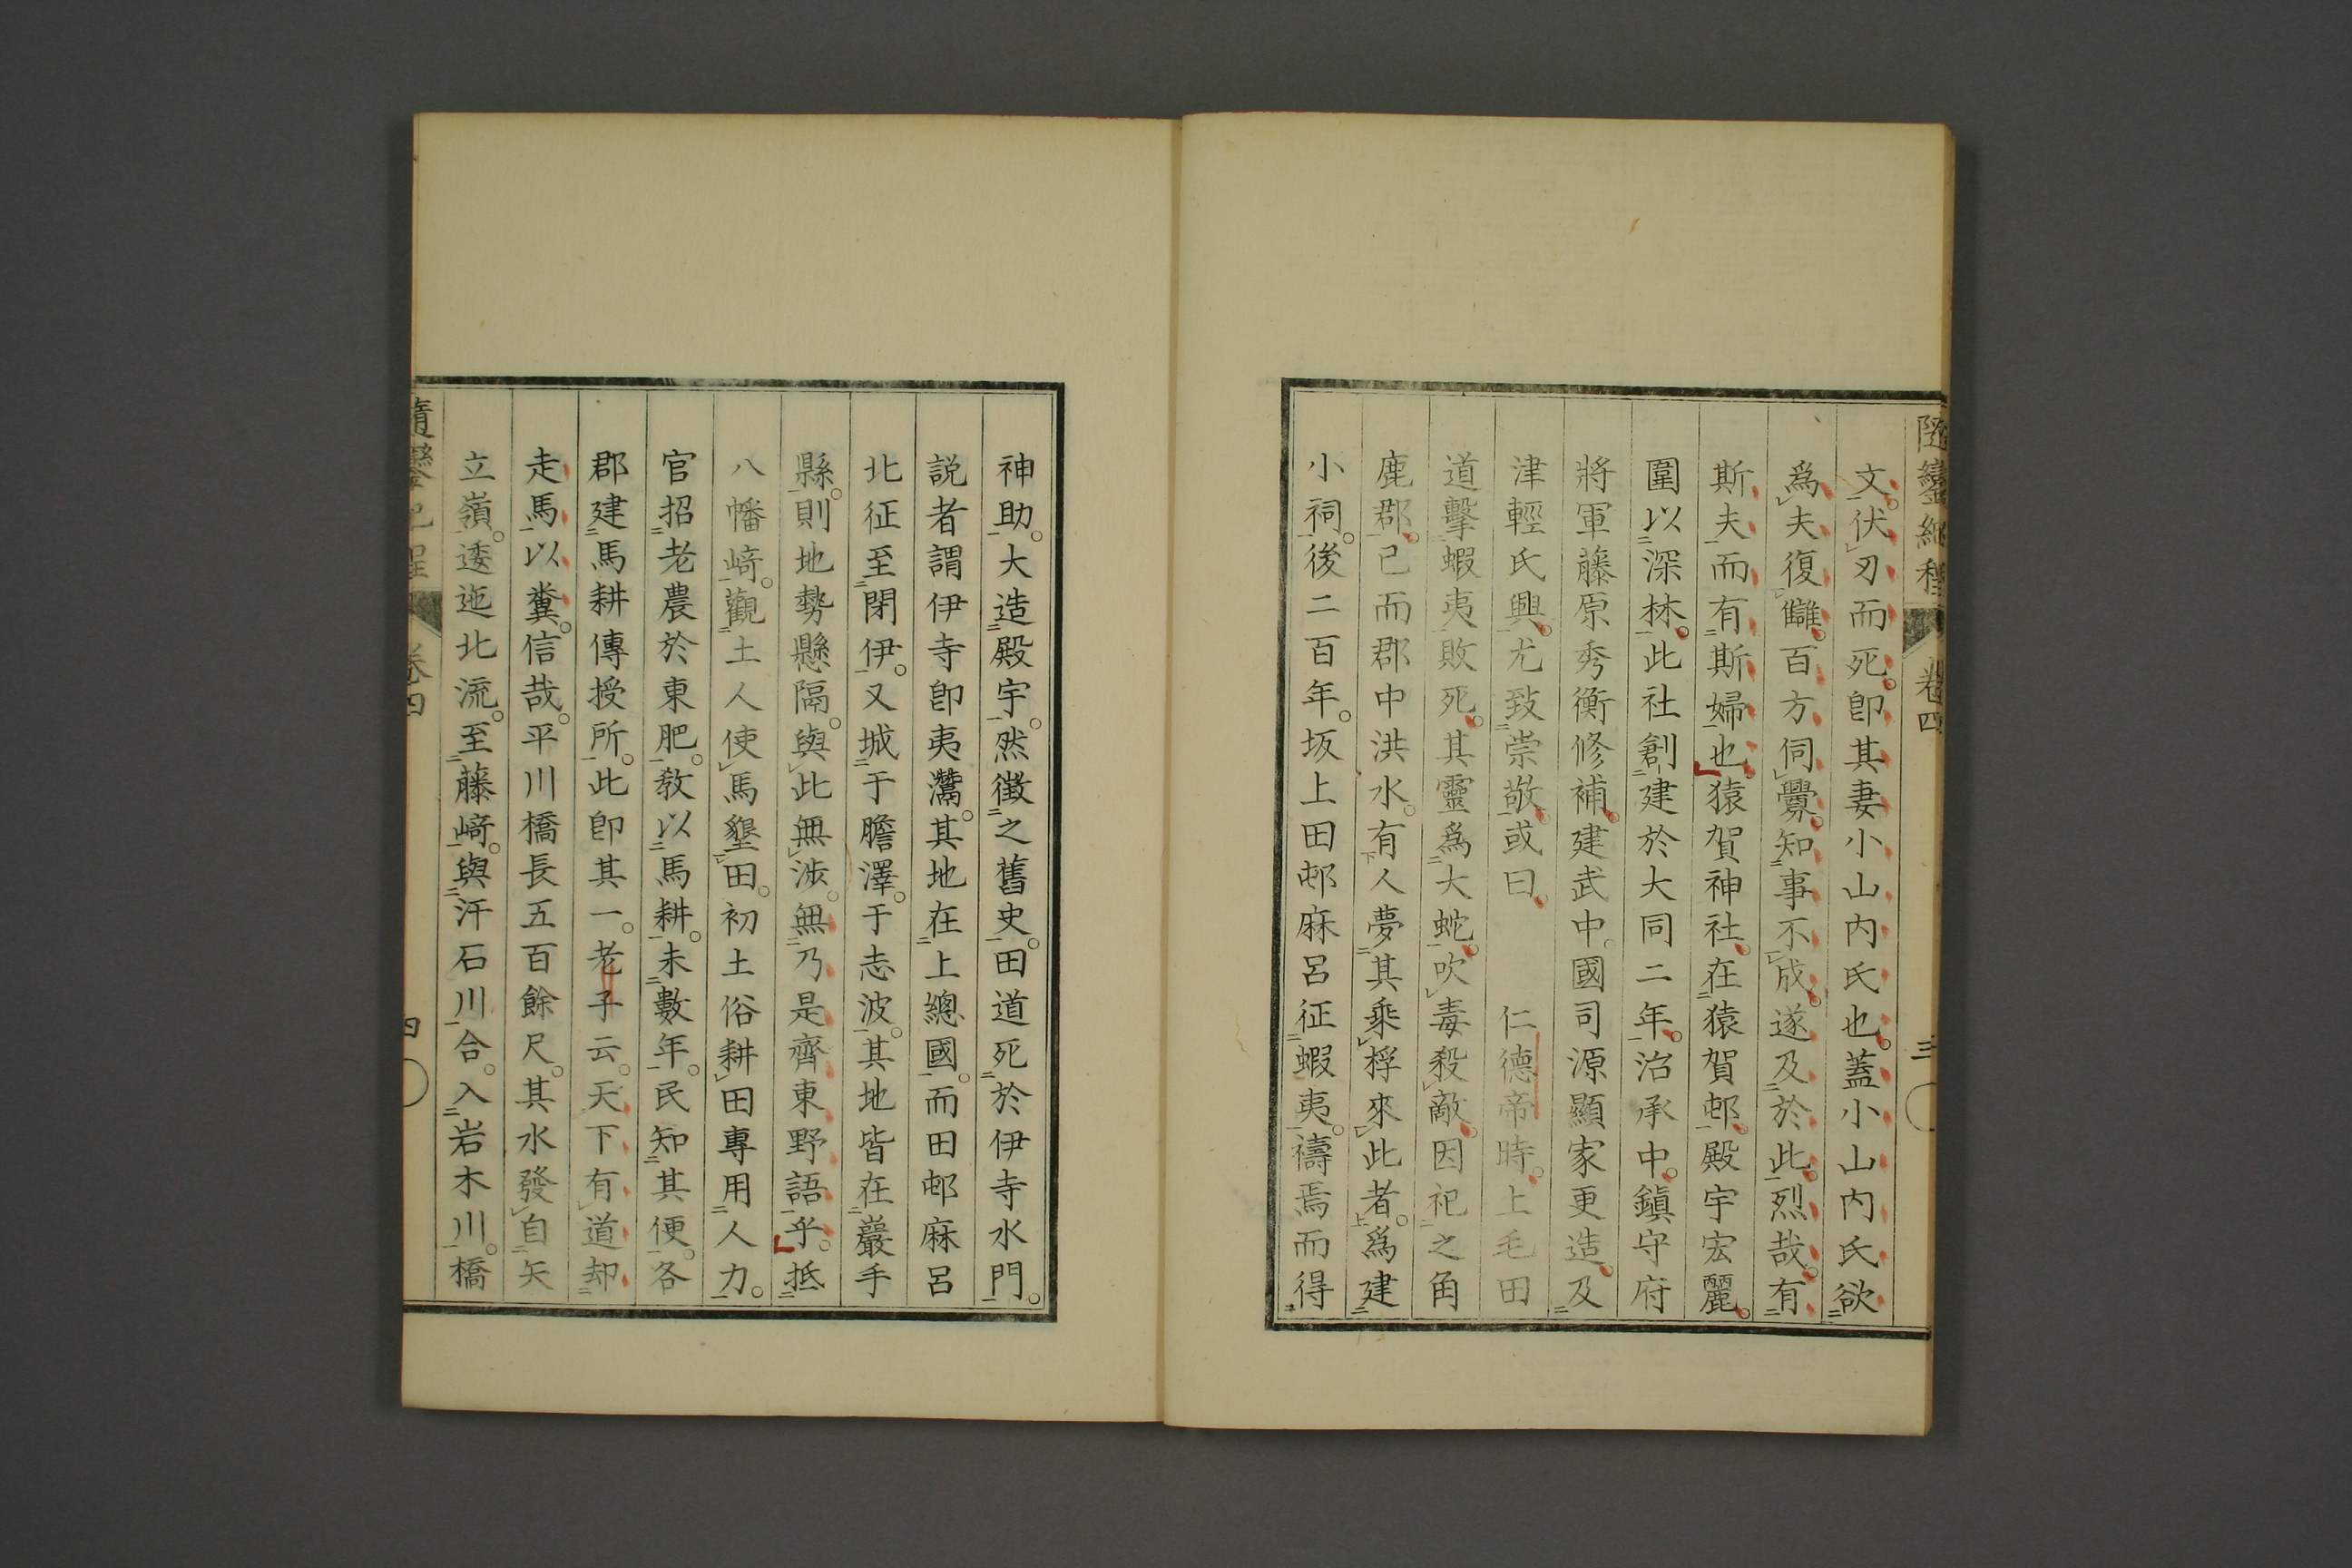 隨鑾紀程 卷四 三
文。伏刃而死。卽其妻小山内氏也。蓋小山内氏欲
爲夫復讎。百方伺釁。知事不成。遂及於此。烈哉。有
斯夫而有斯婦也猿賀神社。在猿賀邨。殿宇宏麗。
圍以深林。此社創建於大同二年。治承中。鎭守府
將軍藤原秀衡修補。建武中。國司源顯家更造。及
津輕氏興。尤致崇敬。或曰。 仁德帝時。上毛田
道擊蝦夷敗死。其靈爲大蛇。吹毒殺敵。因祀之角
鹿郡。已而郡中洪水。有人夢其乘桴來此者。爲建
小祠。後二百年。坂上田邨麻呂征蝦夷。禱焉而得
神助。大造殿宇。然徵之舊史。田道死於伊寺水門。
説者謂伊寺卽夷灊。其地在上總國。而田邨麻呂
北征至閉伊。又城于膽澤。于志波。其地皆在巖手
縣。則地勢懸隔。與此無涉。無乃是齊東野語乎。抵
八幡﨑。觀土人使馬墾田。初土俗耕田專用人力。
官招老農於東肥。敎以馬耕。未數年。民知其便。各
郡建馬耕傳授所。此卽其一。老子云。天下有道却
走馬以糞。信哉。平川橋長五百餘尺。其水發自矢
立嶺。逶迤北流。至藤﨑。與汗石川合。入岩木川。橋
隨鑾紀程 卷四 四